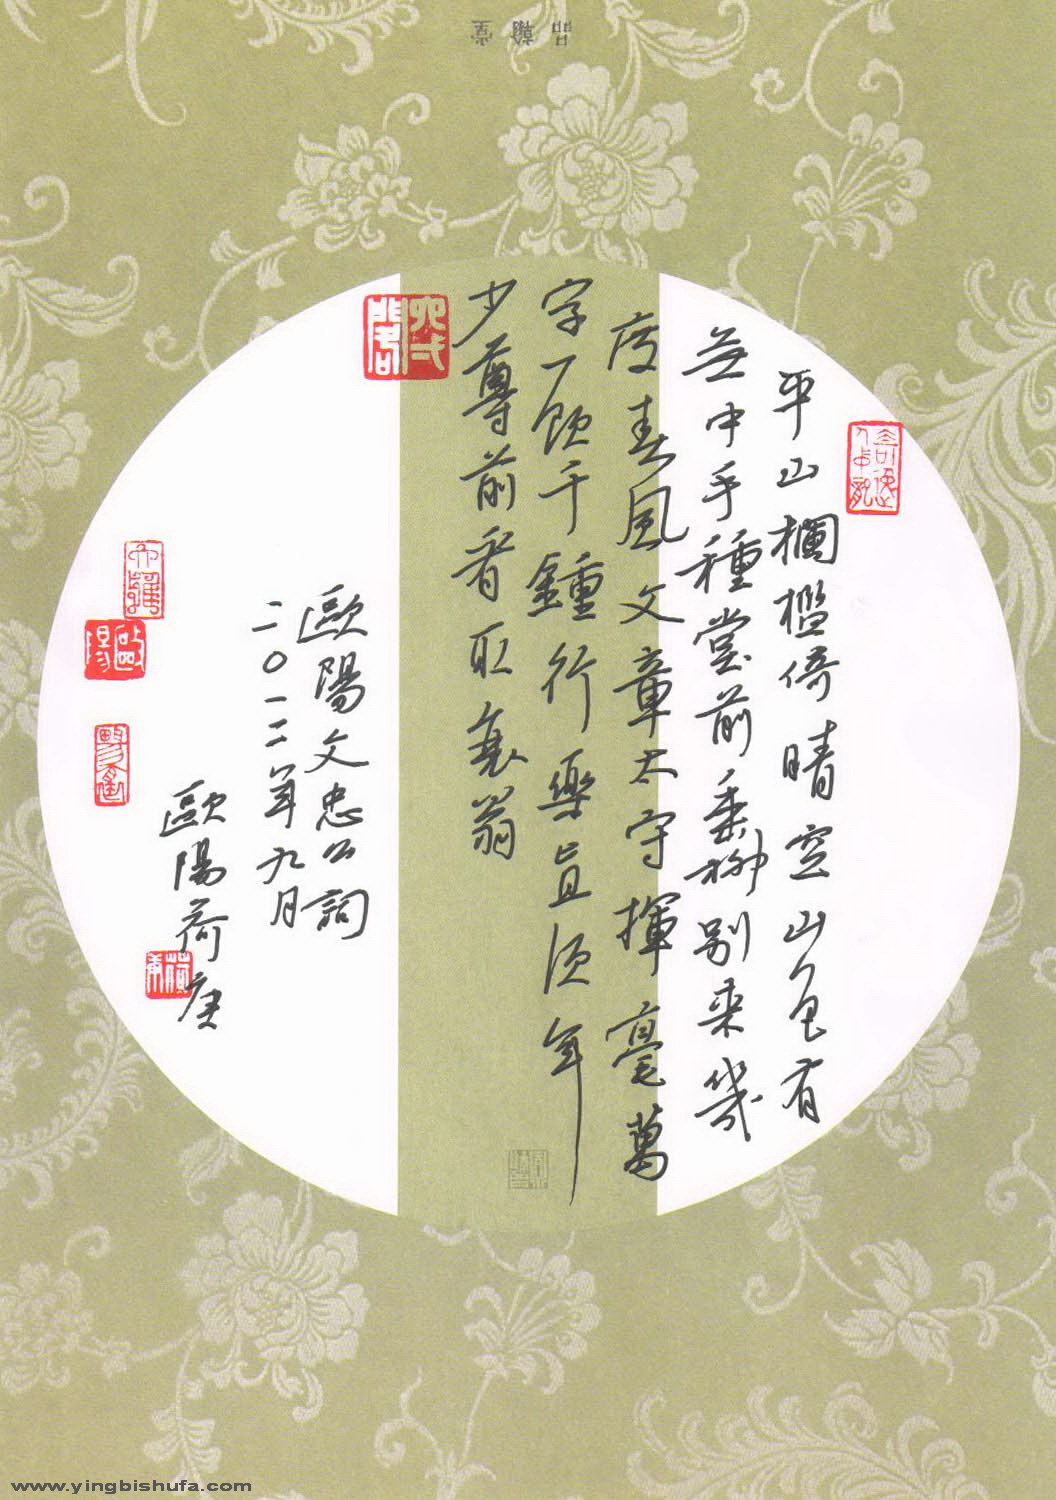 品翰堂
平山欄檻倚晴空山色有
無中手種堂前垂柳別來幾
度春風文章太守揮毫萬
字一飲千鍾行樂直須年
少尊前看取衰翁
歐陽文忠公詞
二〇一二年九月
歐陽荷庚
歐陽
荷庚
www.yingbishufa.com